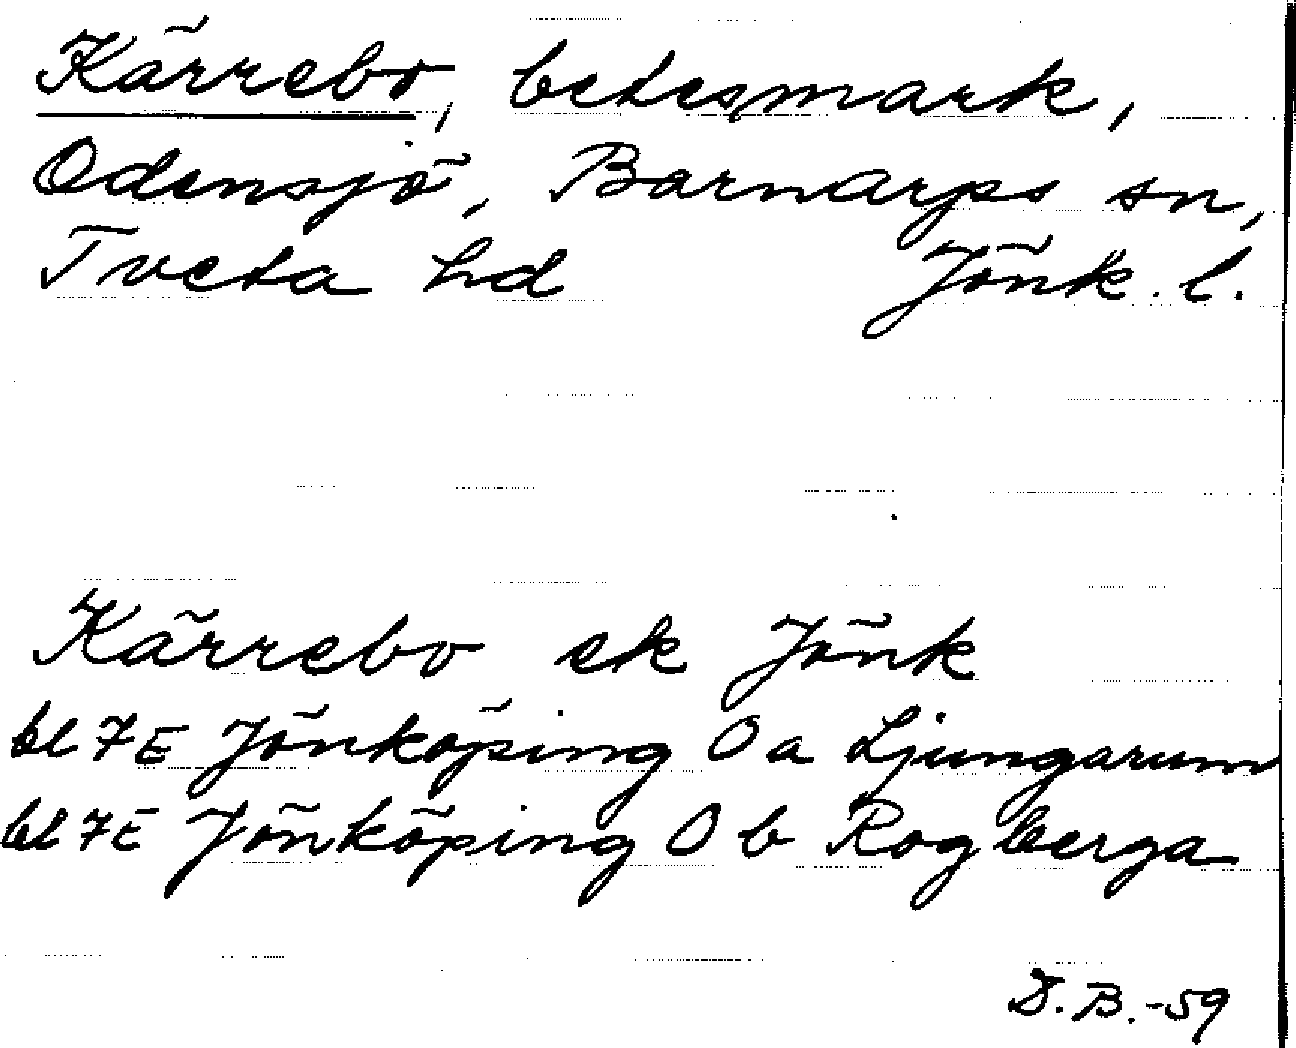 Kärrebo, betesmark,
Odensjö, Barnarps sn,
Tveta hd Jönk. l.
Kärrebo ek Jönk
bl 7E Jönköping O a Ljungarum
bl 7E Jönköping O b Rogberga
B.-59